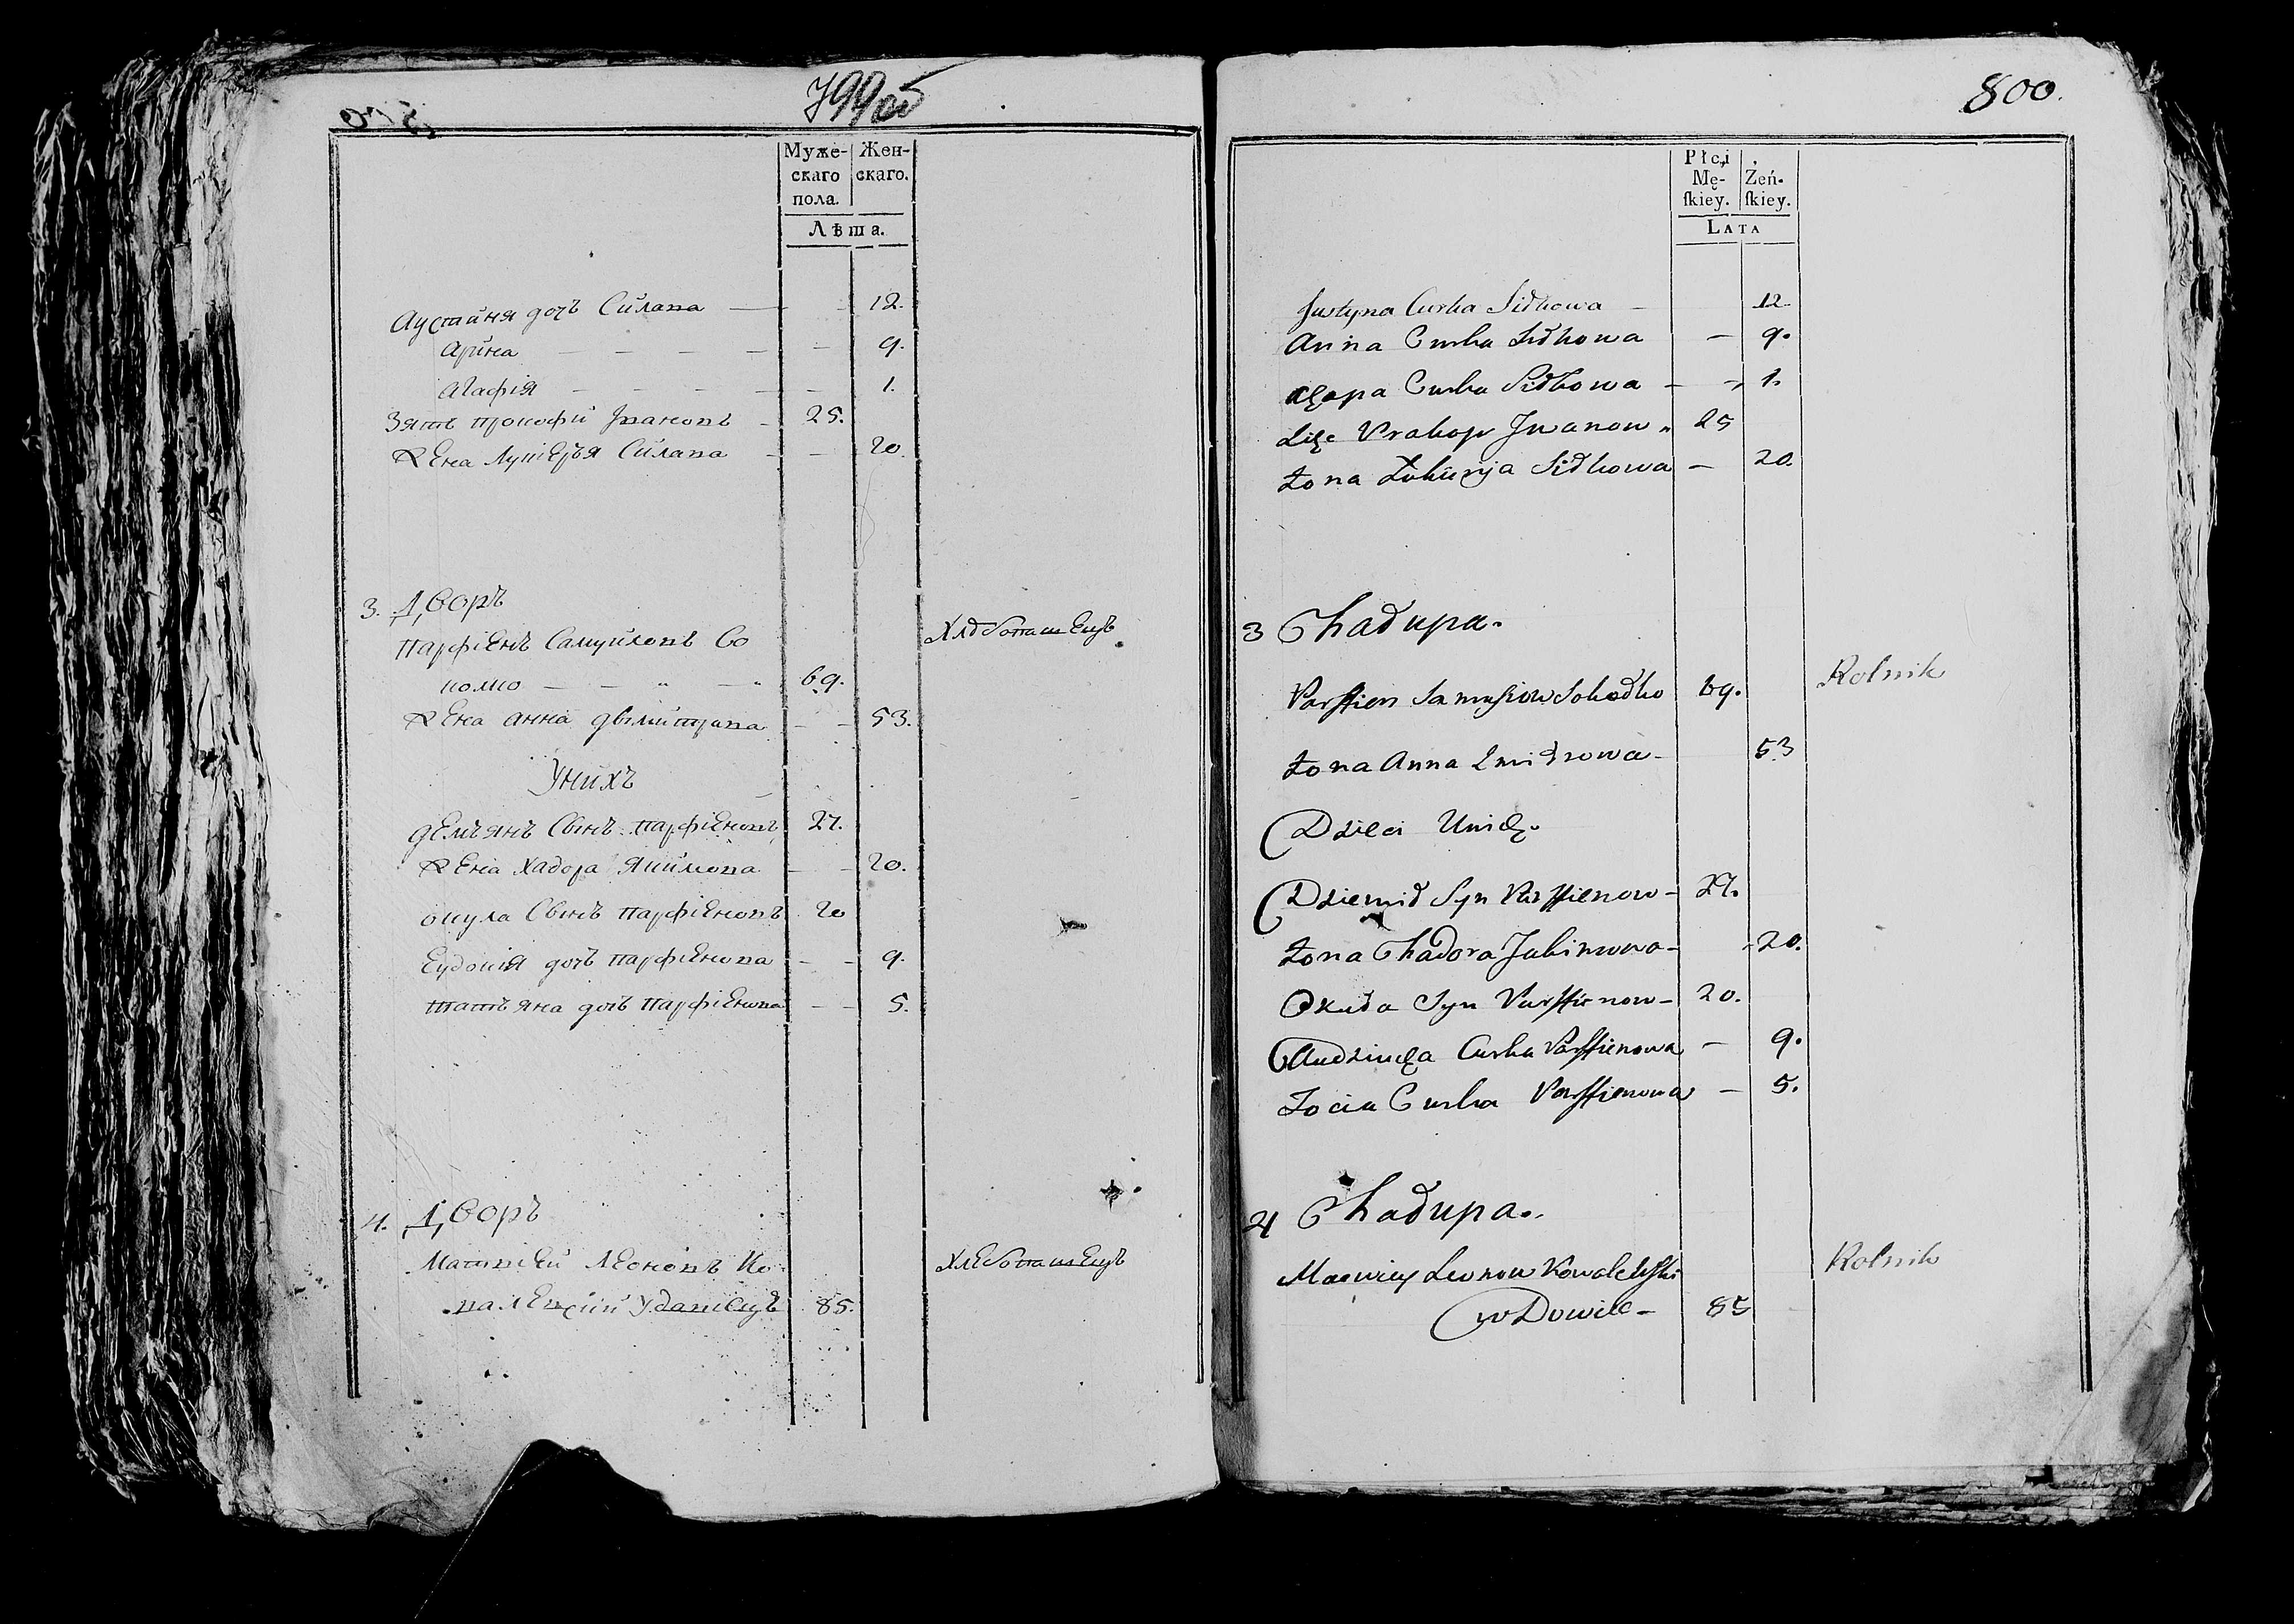 799об
Муже-
скаго
пола.
Жен-
скаго.
Лѣта.
Аустиня дочь Силава — 12.
Арина — — — — — 9.
Агафія — — — — — 1.
Зять прокофи Іванопъ - 25.
Жена Силапа - — 20.
3. Дворъ
парфіенъ Самуйлопъ Со
колко — — „ — „ 69.
Хлѣбопашецъ
Жена анна двімитрапа - - 53.
Унихъ
демъянъ Сынъ парфіенопъ 27.
Жена Хадора Якимопа — - 20.
окула Сынъ парфіенопъ 20
Еудокія дочь парфіенопа - - 9.
татъяна дочь парфіенопа - - 5.
4. Дворъ
Матпіей Леонопъ Ко
Хлебопашецъ
Удапецъ 85.
800.
Płci
Mę-
ſkiey.
Żeń-
ſkiey.
LATA
Justyna Curka Sidkowa — 12.
Anna Curka Sidkowa — 9.
Curka Sidkowa — 1.
Prakop Jwanow „ 25
Żona Sidkowa — 20.
3 Chadupa.
Parffien Samusiow Sokodko 69.
Rolnik
Żona Anna Zmidrowa - 53
Dzieci Unich.
Dziemid Syn Parffienow - 27.
Żona Chadora Jakimowa - 20.
Okuda Syn Parffienow - 20.
Curka Parffienowa — 9.
Tocia Curka Parffienowa — 5.
4 Chadupa.
Leonow Kowalewski
Rolnik
wDowiec - 85